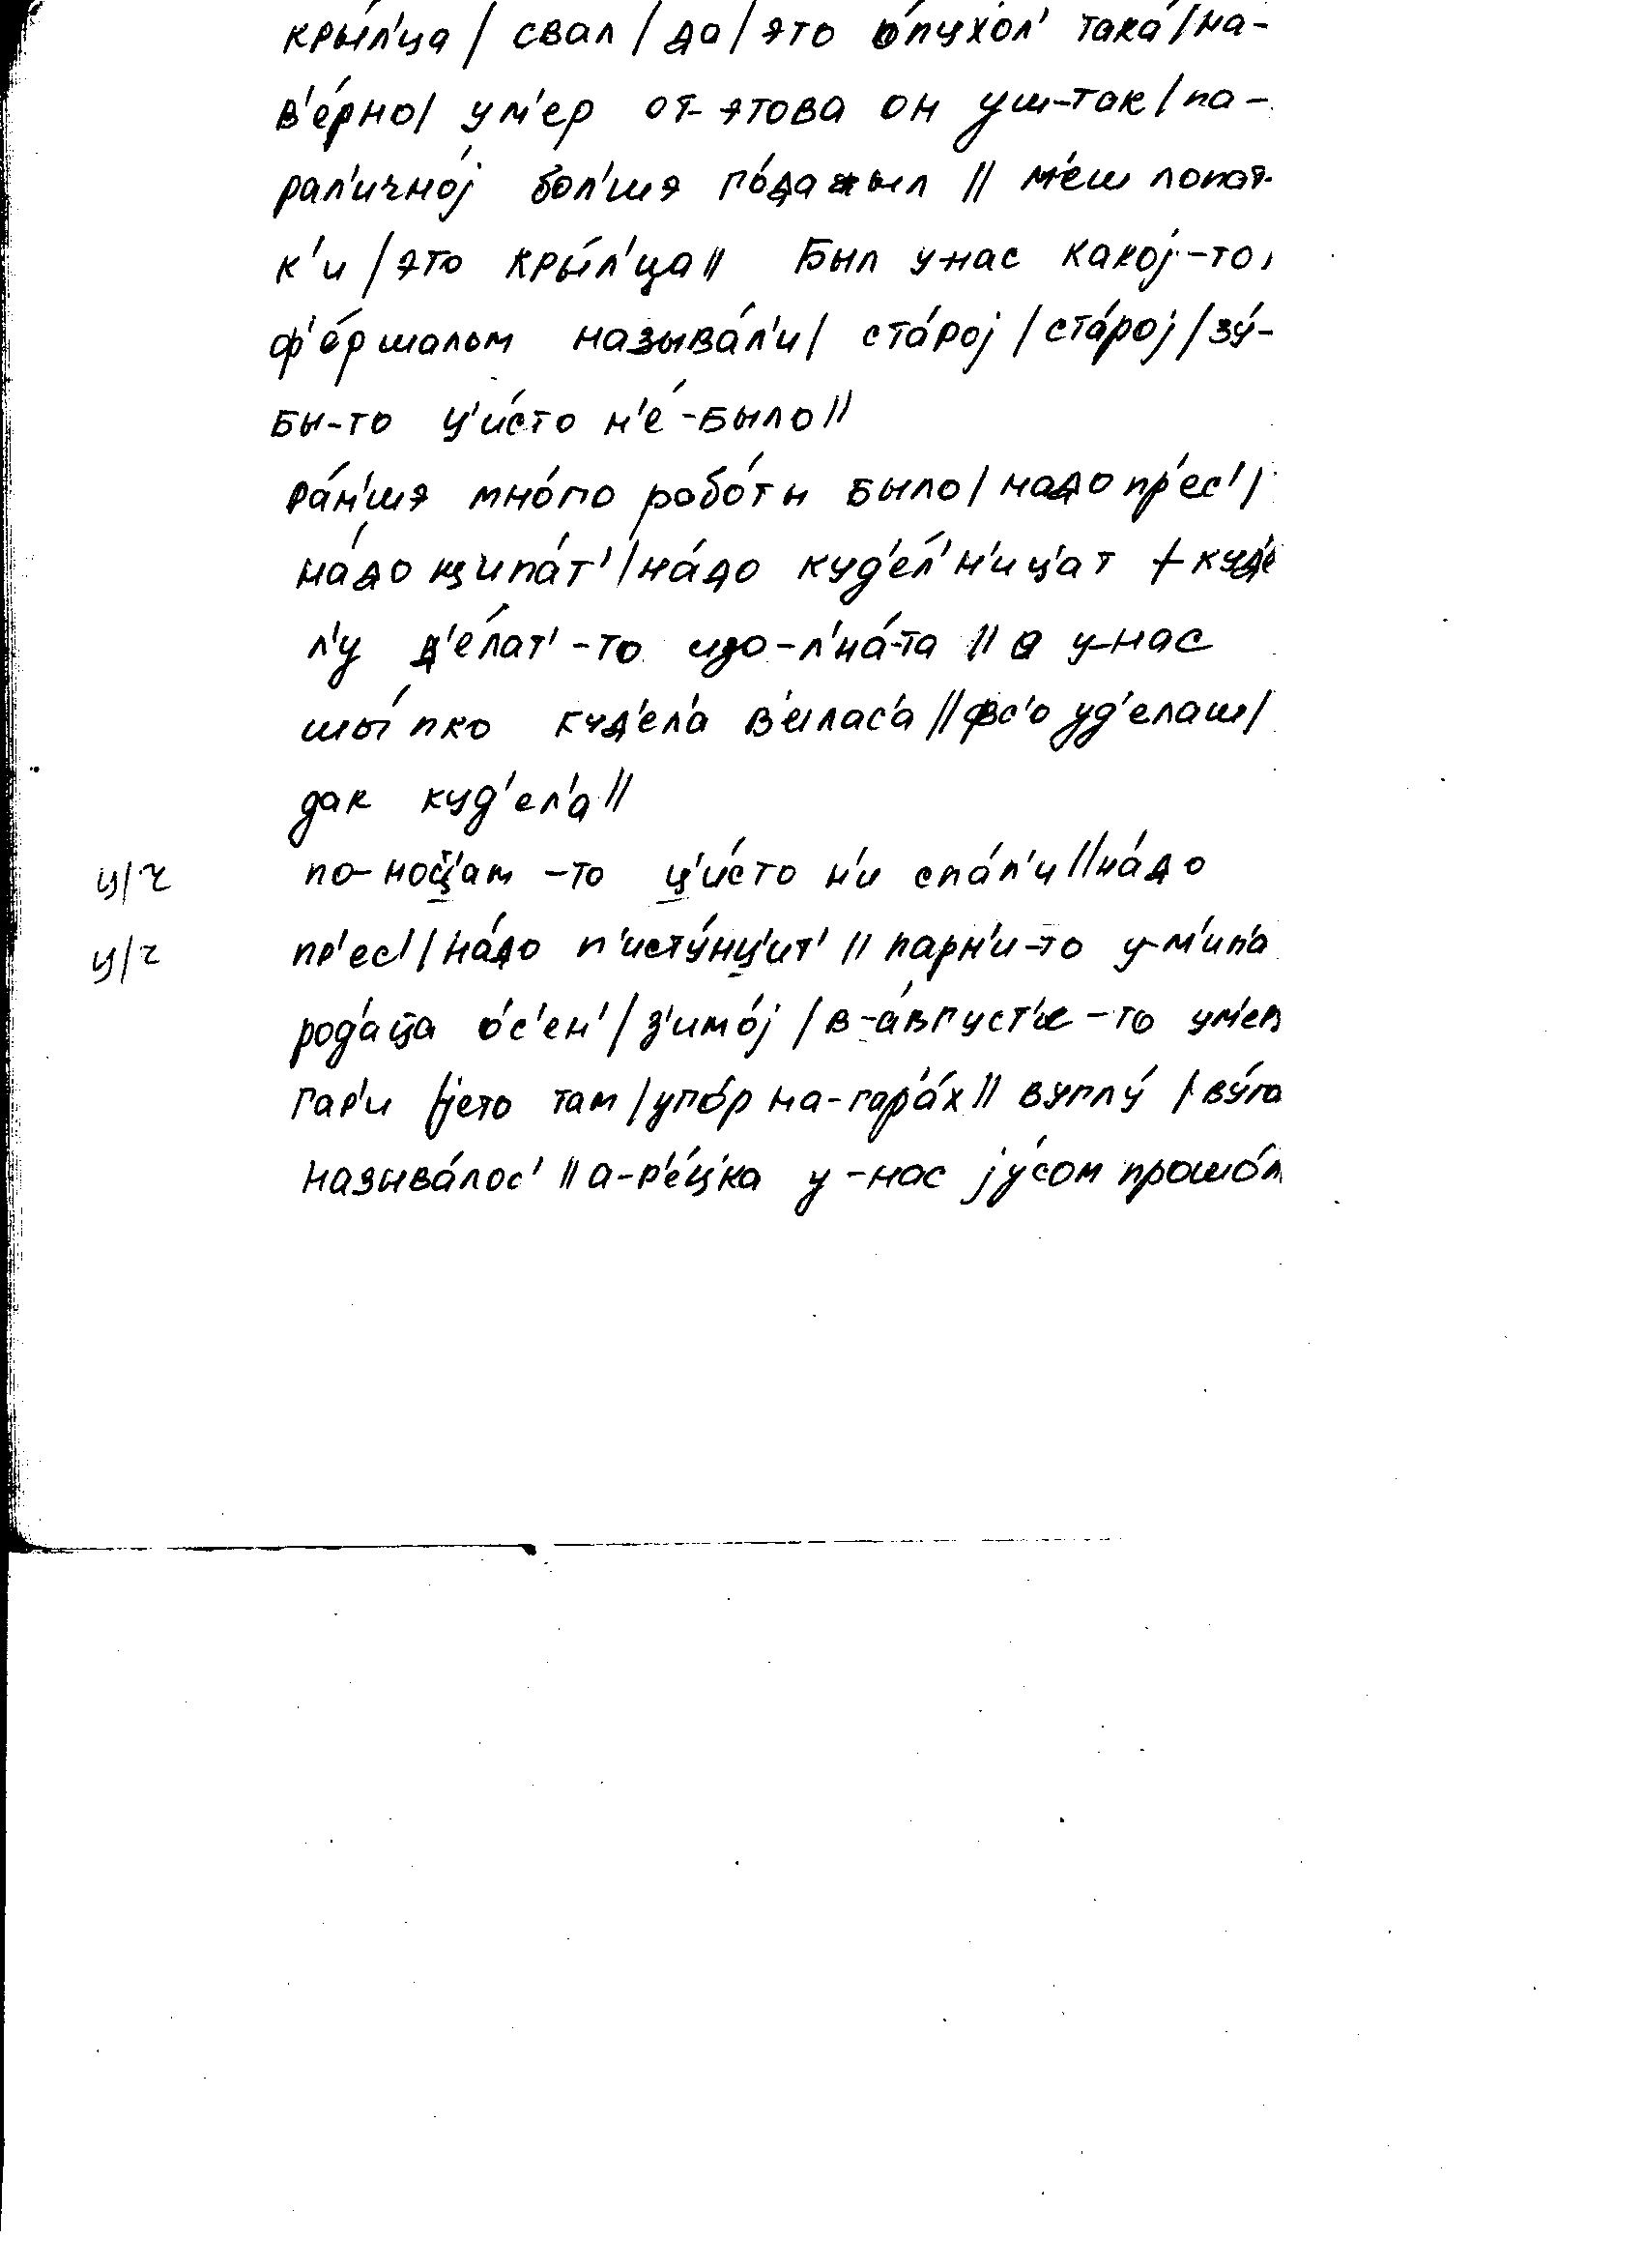 кры́л'ца / свал / да / это о́пухол' така́ / на-
в'е́рно / ум'ер от-этова он уш-так / па-
рал'ично́j бол'шэ го́да жыл // м'еш лопат-
к'и / это кры́л'ца // Был у-нас какоj-то,
ф'е́ршалом называ́л'и / ста́роj / ста́роj / зу́-
бы-то ц'и́сто н'е́-было //
ра́н'шэ мно́го рабо́ты было / надо пр'ес' /
на́до щипа́т' / на́до куд'е́л'н'иц'ат + куд'е
л'у д'е́лат'-то изо-л'на́-та // а у-нас
шы́пко куд'ел'а в'иласа // фс'о уд'елаш /
дак куд'ел'а //
ц/ч по-ноц'ам-то ц'и́сто н'и спа́л'и // на́до
ц/ч пр'ес' / на́до п'исту́нц'ит' // парн'и-то у-м'ин'а
род'аца о́с'ен' / з'имо́j / в-а́вгуст'е-то ум'ер
гар'и jето там / упо́р на-гар'а́х // вуглу́ / ву́га
называ́лос' // а-р'е́ц'ка у-нас jу́сом прошо́л